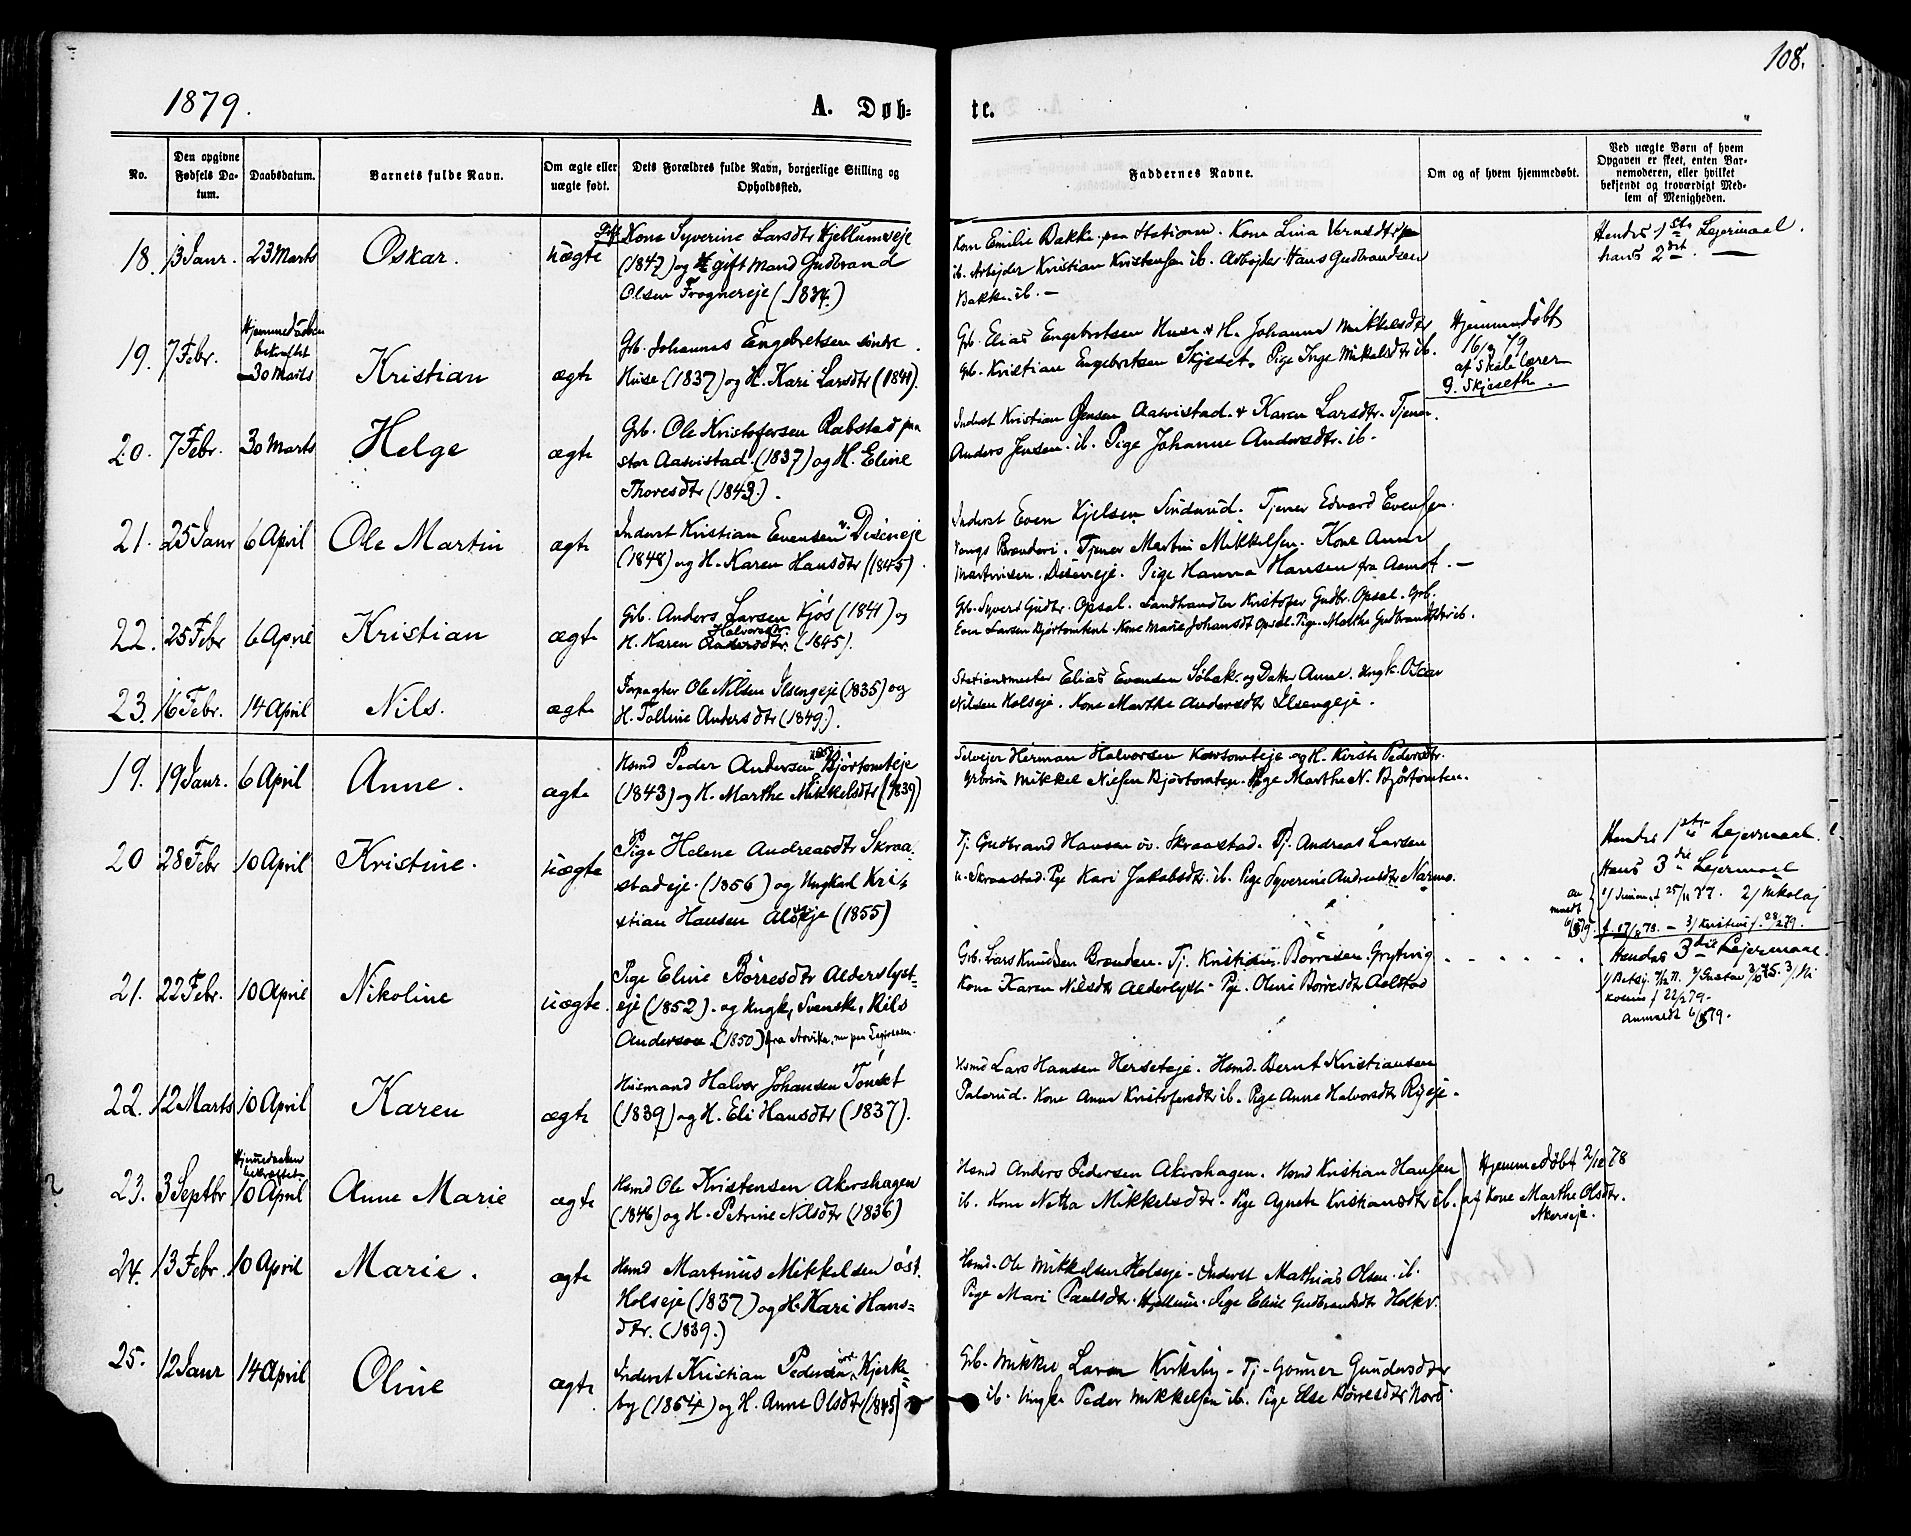 108.
1879.
A. Døb-
te.
No.
Den opgivne Fødsels Datum.
Daabsdatum.
Barnets fulde Navn.
Om ægte eller uægte født.
Dets Forældres fulde Navn, borgerlige Stilling og Opholdssted.
Faddernes Navne.
Om og af hvem hjemmedøbt.
Ved uægte Børn af hvem Opgaven er skeet, enten Barnemoderen, eller hvilket bekjendt og troværdigt Medlem af Menigheden.
18. 13 Janr. 23 Marts Oskar. uægte
Kone Syverine Larsdtr Hjellumseje
(1847) og gift Mand Gudbrand
Olsen Frognereje (1834.)
Kone Emilie Bakke paa Stationen. Kone Lina
ib. Arbejder Kristian Kristensen ib. Arbejder Hans Gudbrandsen
Bakke ib. —
Hendes 1ste Lejermaal.
hans 2det. —
19. 7 Febr. Hjemmedaaben
bekræftet
30 Marts Kristian ægte
Grb. Johannes Engebretsen søndre
Huse (1837) og H. Kari Larsdtr (1841).
Grb. Elias Engebretsen Huse & H. Johanne Mikkelsdtr
Grb. Kristian Engebretsen Skjeset. Pige Inge Mikkelsdtr ib.
Hjemmedøbt
16/2 79
af Skolelærer
O. Skjeseth.
20. 7 Febr. 30 Marts Helge ægte
Grb. Ole Kristofersen Rabstad paa
stor Aasvistad (1837) og H. Eline
Thoresdtr (1843.).
Inderst Kristian Jensen Aasvistad & Karen Larsdtr. Tjener
Anders Jensen ib. Pige Johanne Andersdtr. ib.
21. 25 Janr 6 April Ole Martin ægte
Inderst Kristian Evensen v. Diseneje
(1848) og H. Karen Hansdtr (1845).
Inderst Even Kjelsen Sindsrud. Tjener Edvard Evensen.
Vangs Brænderi. Tjener Martin Mikkelsen. Kone Anne
Martinsen. Diseneje. Pige Hanna Hansen fra Aamot. —
22. 25 Febr 6 April Kristian ægte
Grb. Anders Larsen Kjøs (1841) og
Halvorsdtr.
H. Karen Andersdtr. (1845).
Grb. Syver Gudbr. Opsal. Landhandler Kristofer Gudbr. Opsal. Grb.
Even Larsen Bjørtomten. Kone Marie Johansdt Opsal. Pige Marthe Gudbrandsdtr ib.
23. 16 Febr. 14 April Nils. ægte
Forpagter Ole Nilsen Ilsengeje (1835) og
H. Tolline Andersdtr (1849.).
Stationsmester Elias Evensen Søbak og Datter Anne. Ungk. Oscar
Nilsen Holseje. Kone Marthe Andersdtr Ilsengeje.
19. 19 Janr. 6 April Anne. ægte
Hsmd Peder Andersen Bjørtomteje
(1843) og H. Marthe Mikkelsdtr (1839)
Selvejer Herman Halvorsen Korstomteje og H. Kirsti Pedersdtr.
Mikkel Nielsen Bjørtomten. Pige Marthe N. Bjørtomten.
20 28 Febr 10 April Kristine. uægte
Pige Helene Andreasdtr Skraa-
stadeje. (1856) og Ungkarl Kri-
stian Hansen (1855)
Tj. Gudbrand Hansen øv. Skraastad. Tj. Andreas Larsen
n. Skraastad. Pge Kari Jakobsdtr. ib. Pige Syverine Andreasdtr Narmo.
Hendes 1ste Lejermaal.
Hans 3die Lejermaal
2/ Nikolaj
3/ Kristine f. 28/2 79.
21. 22 Febr. 10 April Nikoline uægte.
Pige Eline Børresdtr Alderslyst-
eje (1852). og Ungk, Svenske, Nils
Anderson. (1850) fra Arvika,
Grb. Lars Knudsen Brænden. Tj. Kristian Børresen. Gryting
Kone Karen Nilsdtr Alderlyst. Pge. Oline Børresdtr Aalstad
Hendes 3die Lejermaal.
Gustav
f 22/2 79.
Anmeldt 6/3 79.
22. 12 Marts 10 April Karen ægte
Husmand Halvor Johansen Tomset
(1839) og H. Eli Hansdtr (1837).
Hsmd Lars Hansen Herseteje. Hsmd. Bernt Kristiansen
Palerud. Kone Anne Kristofersdtr ib. Pige Anne Halvorsdtr Ryeje.
23. 3 Septbr Hjemmedaaben
bekræftet
10 April Anne Marie ægte
Hsmd Ole Kristensen Akershagen
(1846) og H. Petrine Nilsdtr (1836)
Hsmd Anders Pedersen Akershagen. Hsmd Kristian Hansen
ib. Kone Netta Mikkelsdtr. Pige Agnete Kristiansdtr ib.
Hjemmedøbt 2/10 78
af Kone Marthe Olsdtr.
Akerseje.
24. 13 Febr. 10 April Marie. ægte
Hsmd Martinus Mikkelsen øst.
Holseje (1837) og H. Kari Hans-
dtr. (1839.)
Hsmd. Ole Mikkelsen Holseje. Inderst Mathias Olsen. ib.
Pige Mari Paulsdtr. Hjellum. Pige Eline Gudbrandsdtr
25. 12 Janr 14 April Oline ægte
Inderst Kristian Pedersen, Kjerke-
by (1854) og H. Anne Olsdtr (1845)
Grb. Mikkel Larsen Kirkeby. Tj. Gundersdtr
ib. Ungk. Peder Mikkelsen ib. Pige Else Børresdtr Nord.